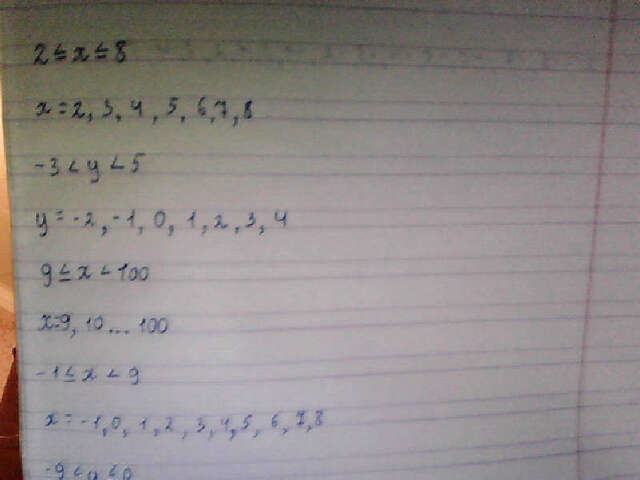 2 ≤ x ≤ 8
x = 2, 3, 4, 5, 6, 7, 8
-3 < y < 5
y = -2, -1, 0, 1, 2, 3, 4
9 ≤ x < 100
x=9, 10 ... 100
-1 ≤ x < 9
x = -1, 0, 1, 2, 3, 4, 5, 6, 7, 8